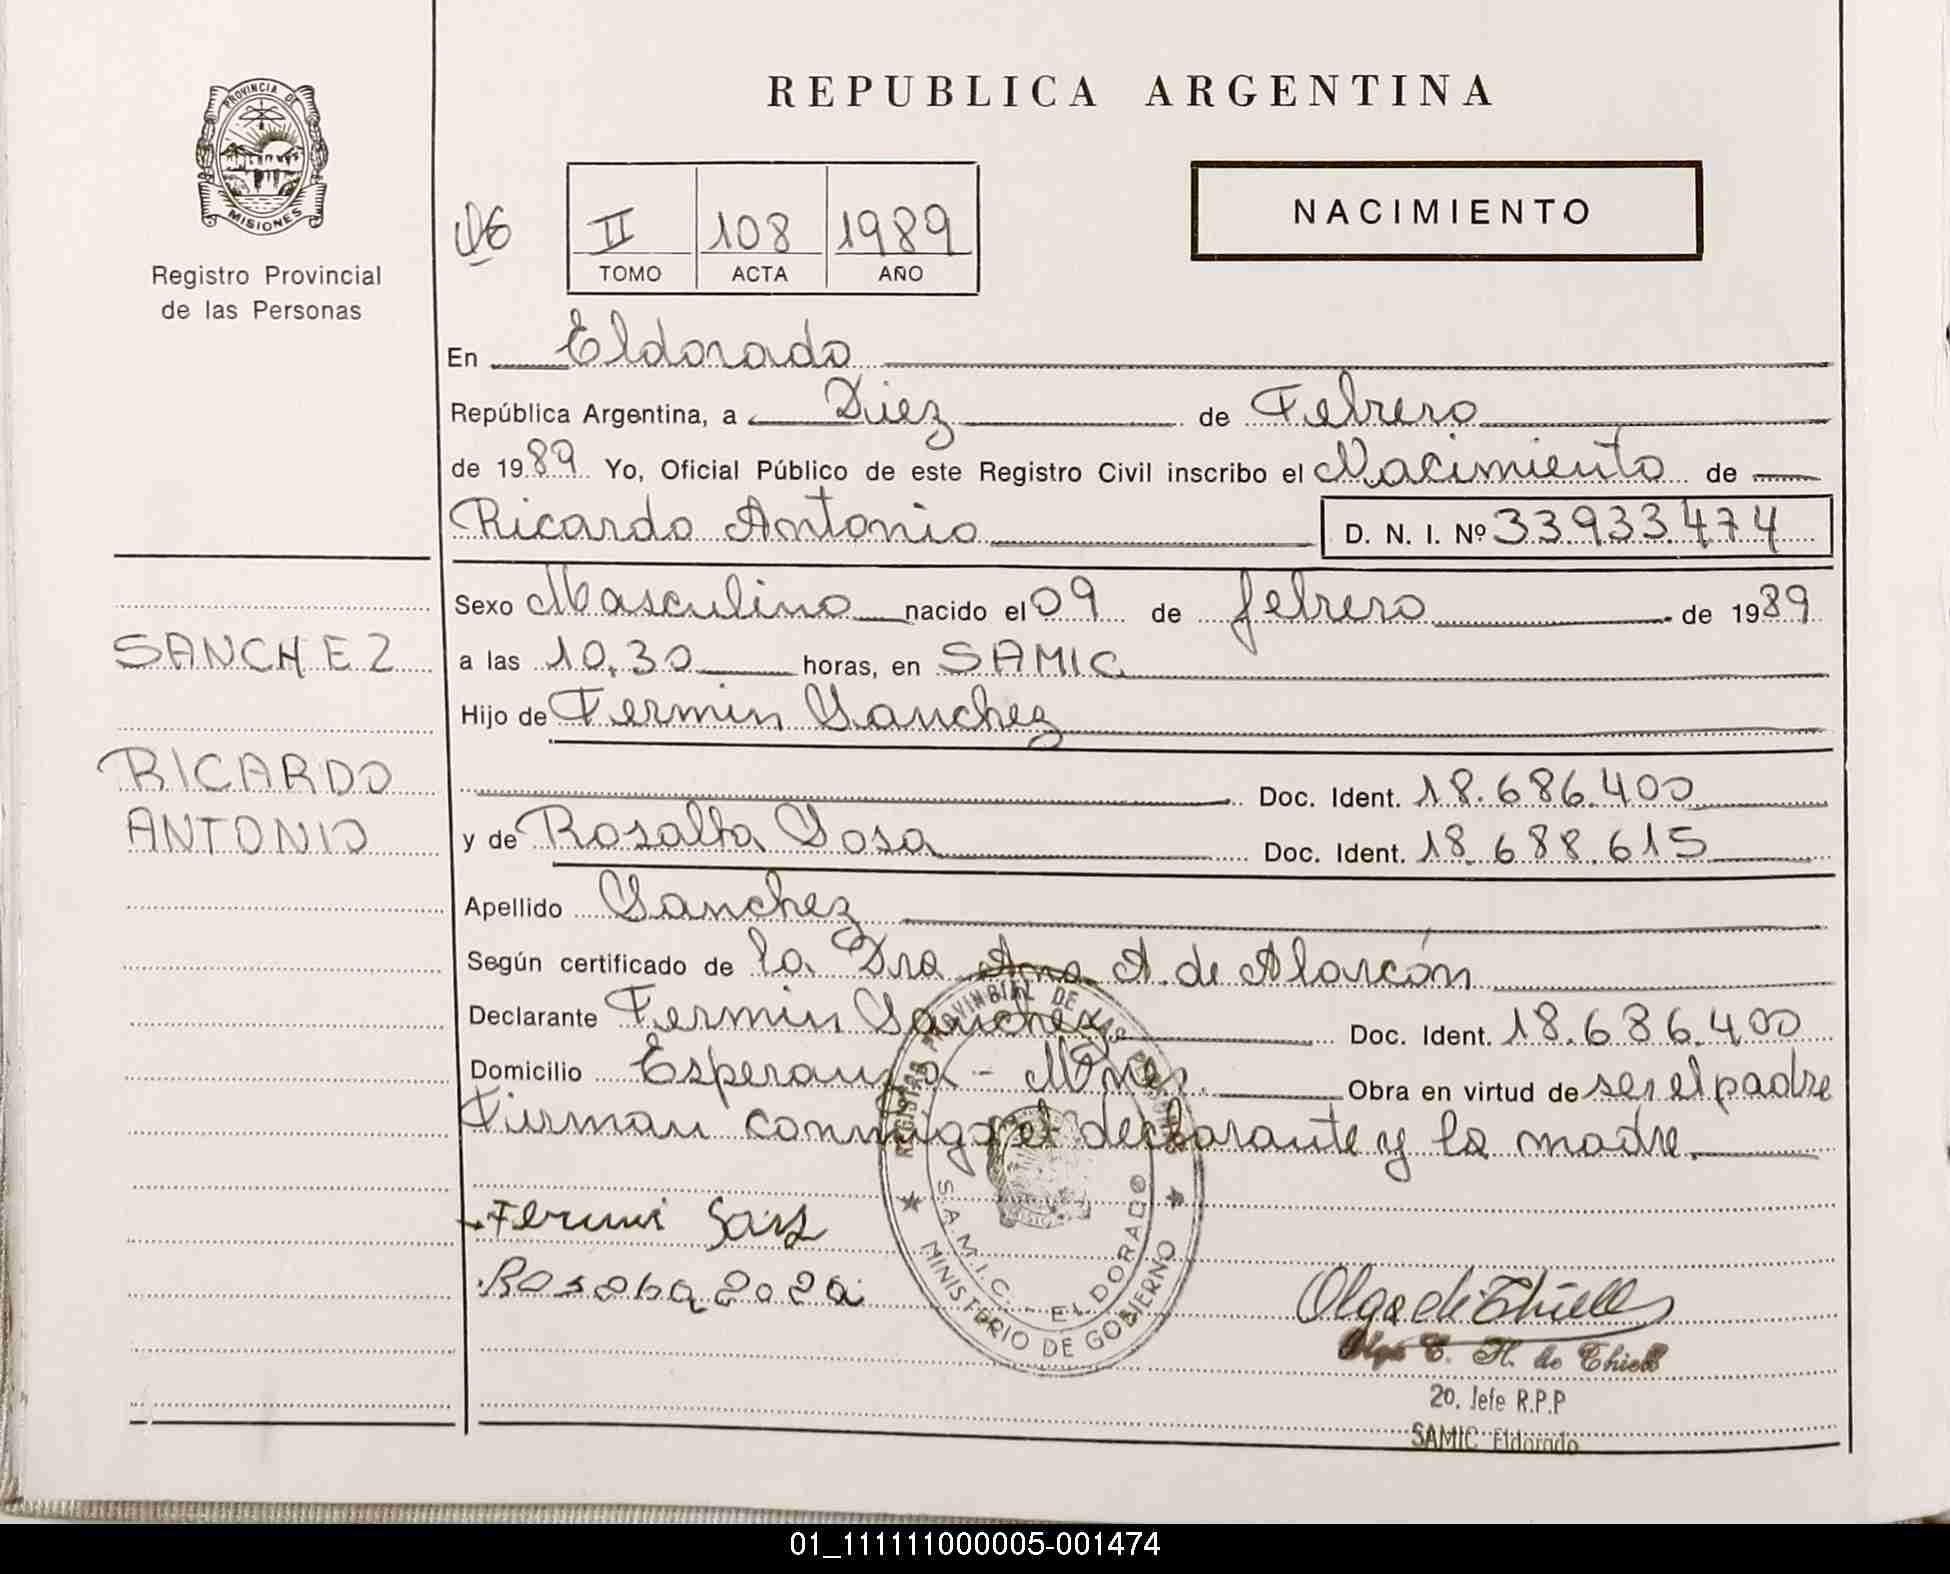 PROVINCIA DE
MISIONES
Registro Provincial
de las Personas
REPUBLICA ARGENTINA
NACIMIENTO
06
II 108 1989
TOMO ACTA AÑO
En Eldorado
República Argentina, a Diez de Febrero
de 1989 Yo, Oficial Público de este Registro Civil inscribo el Nacimiento de
Ricardo Antonio D. N. I. Nº 33.933.474
Sexo Masculino nacido el 09 de febrero de 1989
SANCHEZ
a las 10,30 horas, en SAMIC
Hijo de Fermin Sanchez
RICARDO
ANTONIO
Doc. Ident. 18.686.400
y de Rosalba Sosa Doc. Ident. 18.688.615
Apellido Sanchez
Según certificado de la Dra Ana A. de Alarcón
Declarante Fermin Sanchez Doc. Ident. 18.686.400
Domicilio Esperanza - Mnes. Obra en virtud de ser el padre
Firman conmigo el declarante y la madre.
REGISTRO PROVINCIAL DE LAS PERSONAS
S.A.M.I.C. - ELDORADO
MINISTERIO DE GOBIERNO
Olga de Thiell
Olga E. H. de Thiell
20. Jefe R.P.P
SAMIC Eldorado
01_111111000005-001474